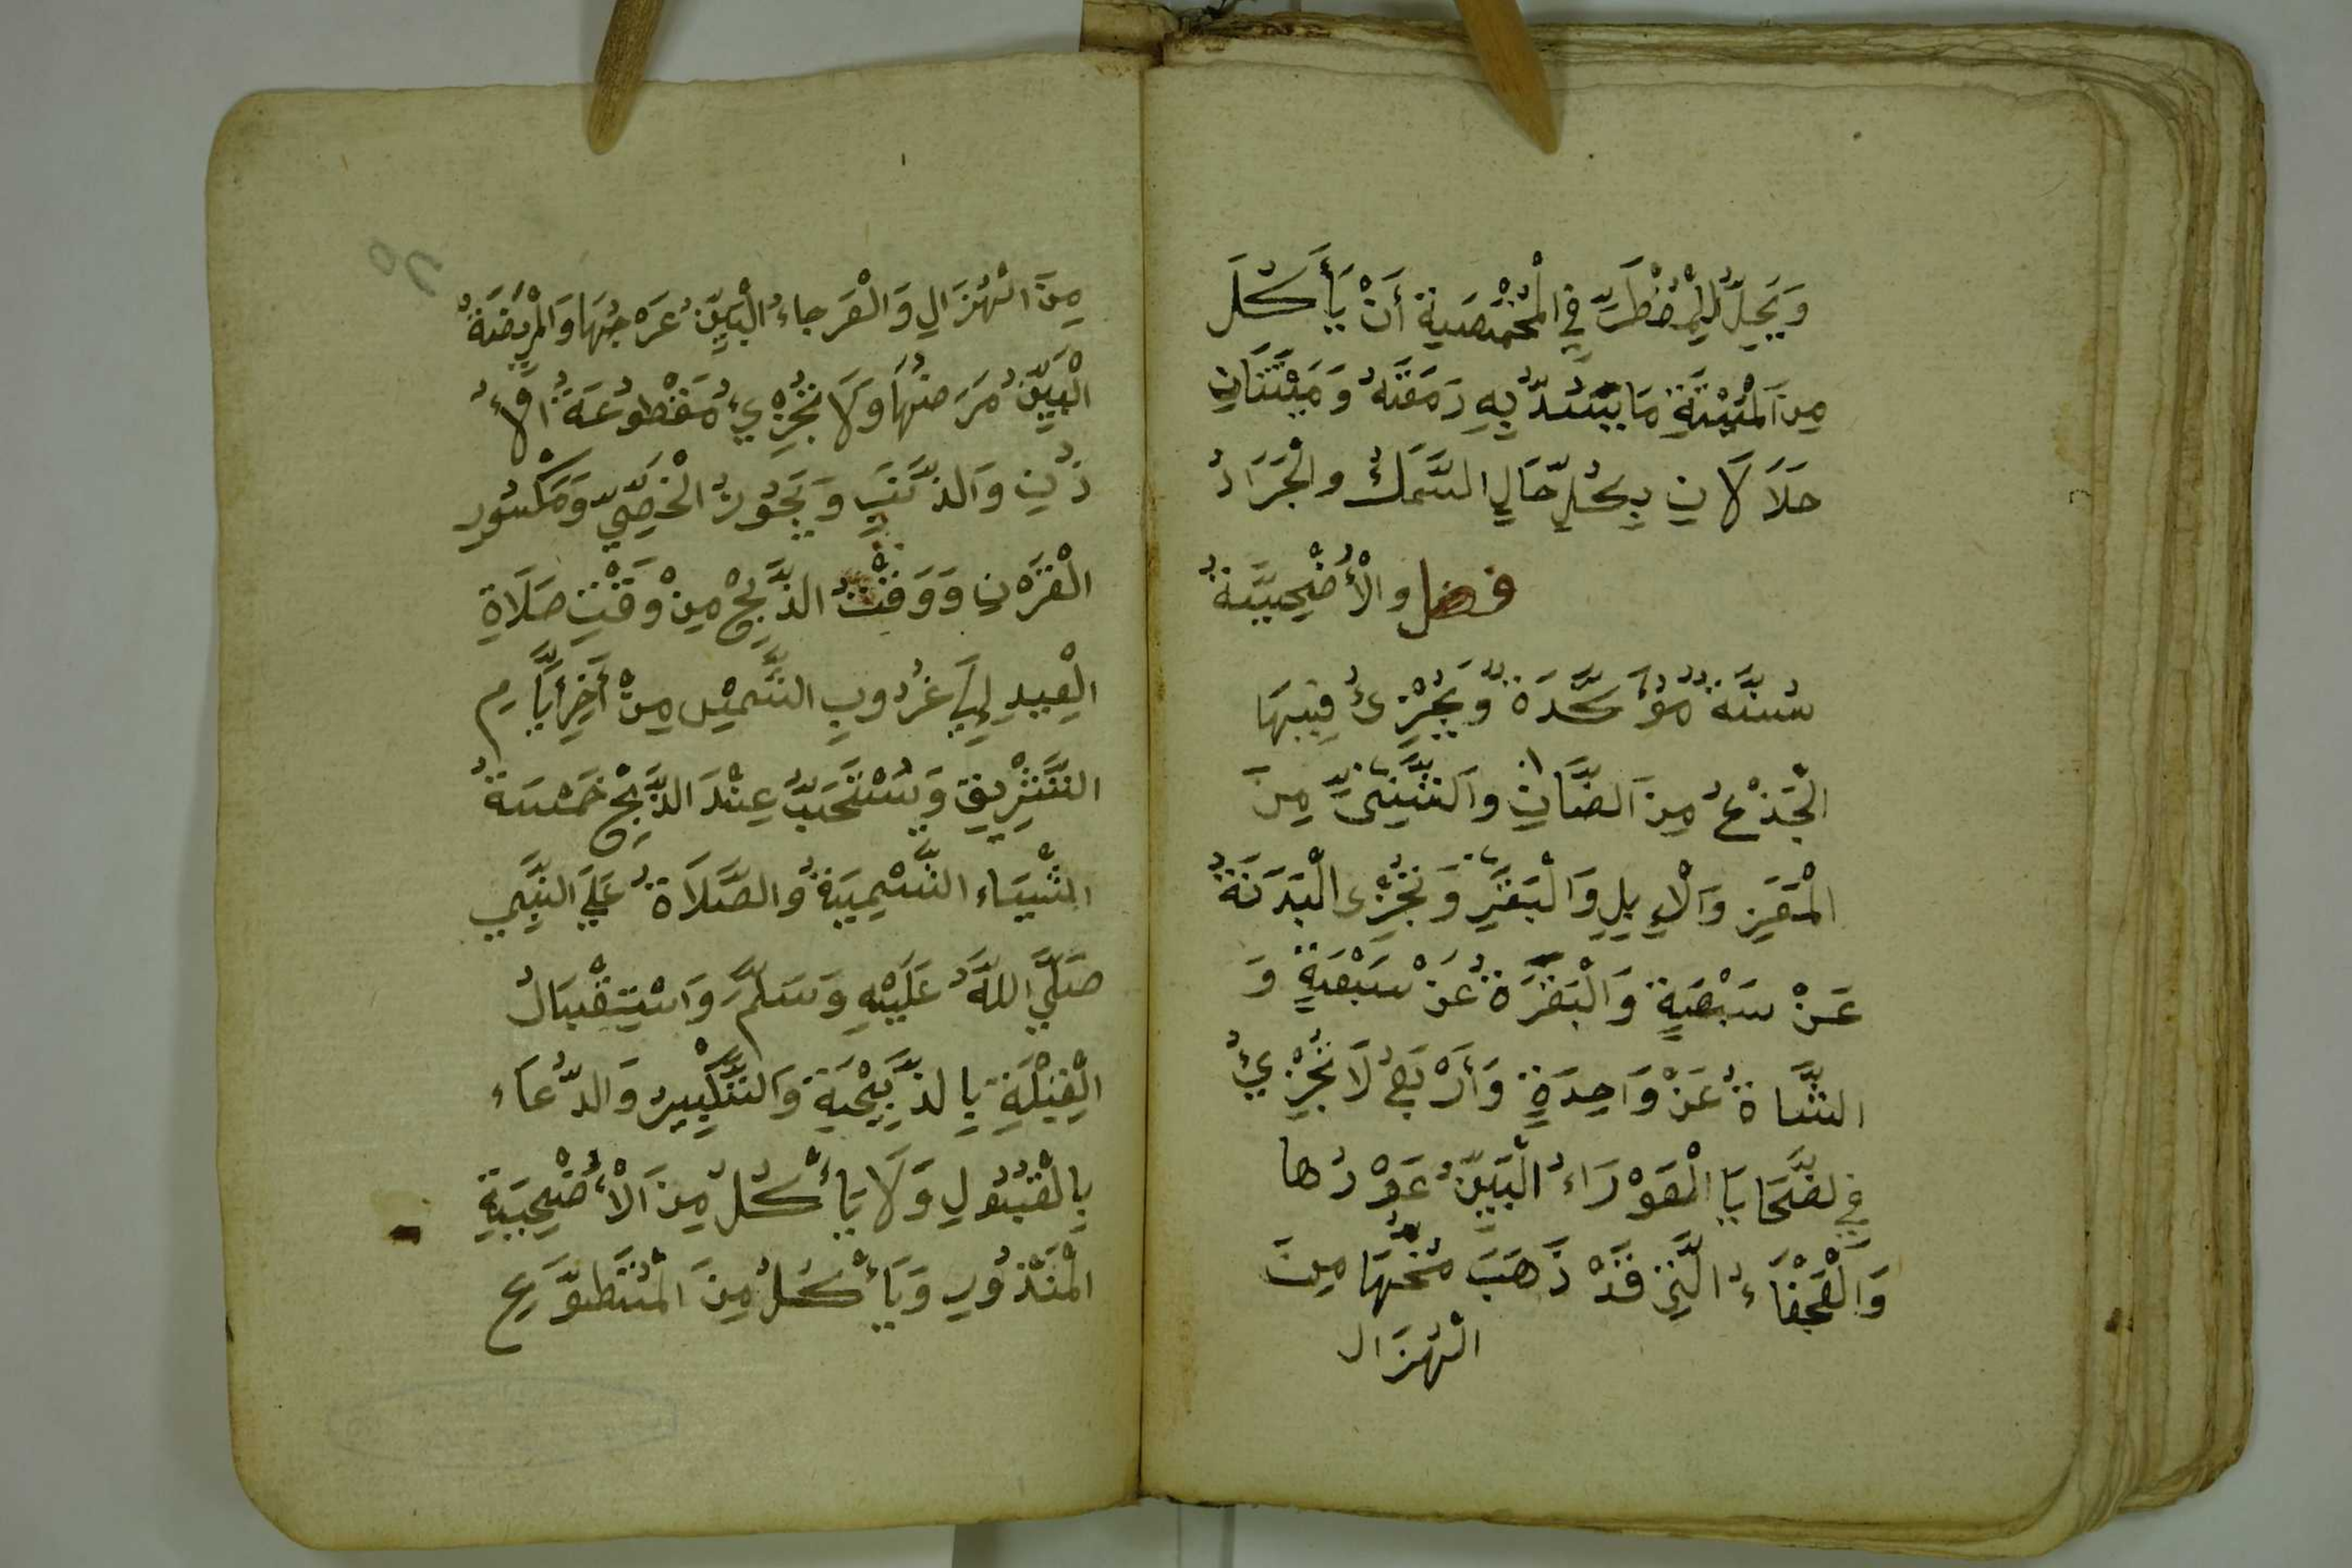 وَيَحِلُّ لِلْمُضْطَرِّ فِي الْمُخْمَصَةِ أَنْ يَأْكُلَ
مِنَ الْمَيْتَةِ مَا يَسُدُّ بِهِ رَمَقَهُ وَمَيْتَتَانِ
حَلَالَانِ بِكُلِّ حَالٍ السَّمَكُ والْجَرَادُ
فصل والْأُضْحِيَّةُ
سُنَّةٌ مُؤَكَّدَةٌ وَيُجْزِئُ فِيهَا
الْجَذْعُ مِنَ الضَّانِ والثَّنِيُّ مِنَ
الْمَعَزِ وَالْإِبِلِ وَالْبَقَرِ وَتُجْزِي الْبَدَنَةُ
عَنْ سَبْعَةٍ وَالْبَقَرَةُ عَنْ سَبْعَةٍ وَ
الشَّاةُ عَنْ وَاحِدَةٍ وَأَرْبَعٌ لَا تُجْزِئُ
فِي لضَّحَايَا الْعَوْرَاءُ الْبَيِّنُ عَوْرُها
وَالْعَجْفَاءُ الَّتِي قَدْ ذَهَبَ مُخُّهَا مِنَ
الْهُزَال
مِنَ الْهُزَالِ وَالْعَرجاءُ الْبَيِّنُ عَرَجُهَا وَالْمَرِيضَةُ
الْبَيِّنُ مَرَضُهَا وَلَا تُجْزِيُ مَقْطُوعَةُ الْأُ
ذُنِ وَالذَّنَبِ وَيَجُوزُ الْخَصِيُّ وَمَكْسُورِ
الْقَرْنِ وَوَقْتُ الذَّبْحِ مِنْ وَقْتِ صَلَاةِ
الْعِيدِ إِلَى غُرُوبِ الشَّمْسِ مِنْ أَخِرِ أَيَّامِ
التَّشْرِيقِ وَيُسْتَحَبُّ عِنْدَ الذَّبْحِ خَمْسَةُ
اشْيَاء التَّسْمِيَةُ والصَّلَاةُ عَلَى النَّبِي
صَلَّى اللَّهُ عَلَيْهِ وَسَلَّمَ وَاسْتِقْبَالُ
الْقِبْلَةِ بِالذَّبِيْحَةِ وَالتَّكْبِيرُ وَالدُّعَاءِ
بِالْقَبُولِ وَلَا يَأْكُلُ مِنَ الْأُضْحِيَةِ
الْمَنْذُورِ وَيَأْكُلُ مِنَ الْمُتَطَوَّعِ